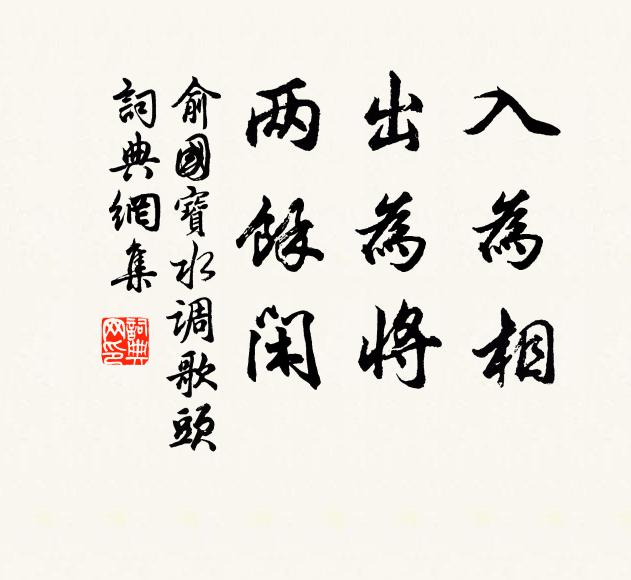 入為相
出為將
两餘閑
俞國寶水调歌頭
詞典網集
詞典网印